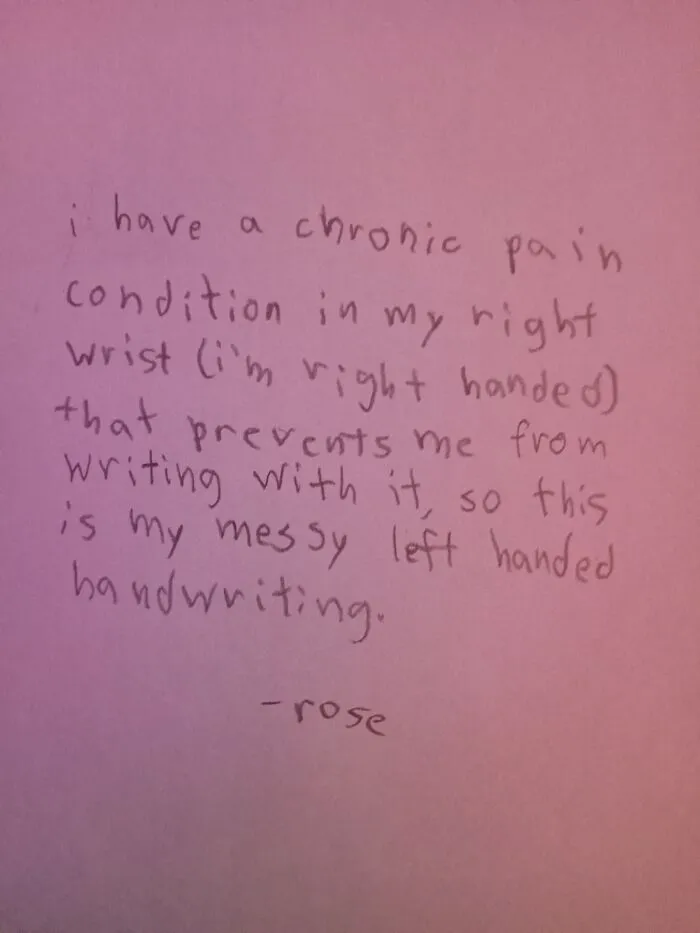 i have a chronic pain
condition in my right
wrist (i'm right handed)
that prevents me from
writing with it, so this
is my messy left handed
handwriting.
-rose